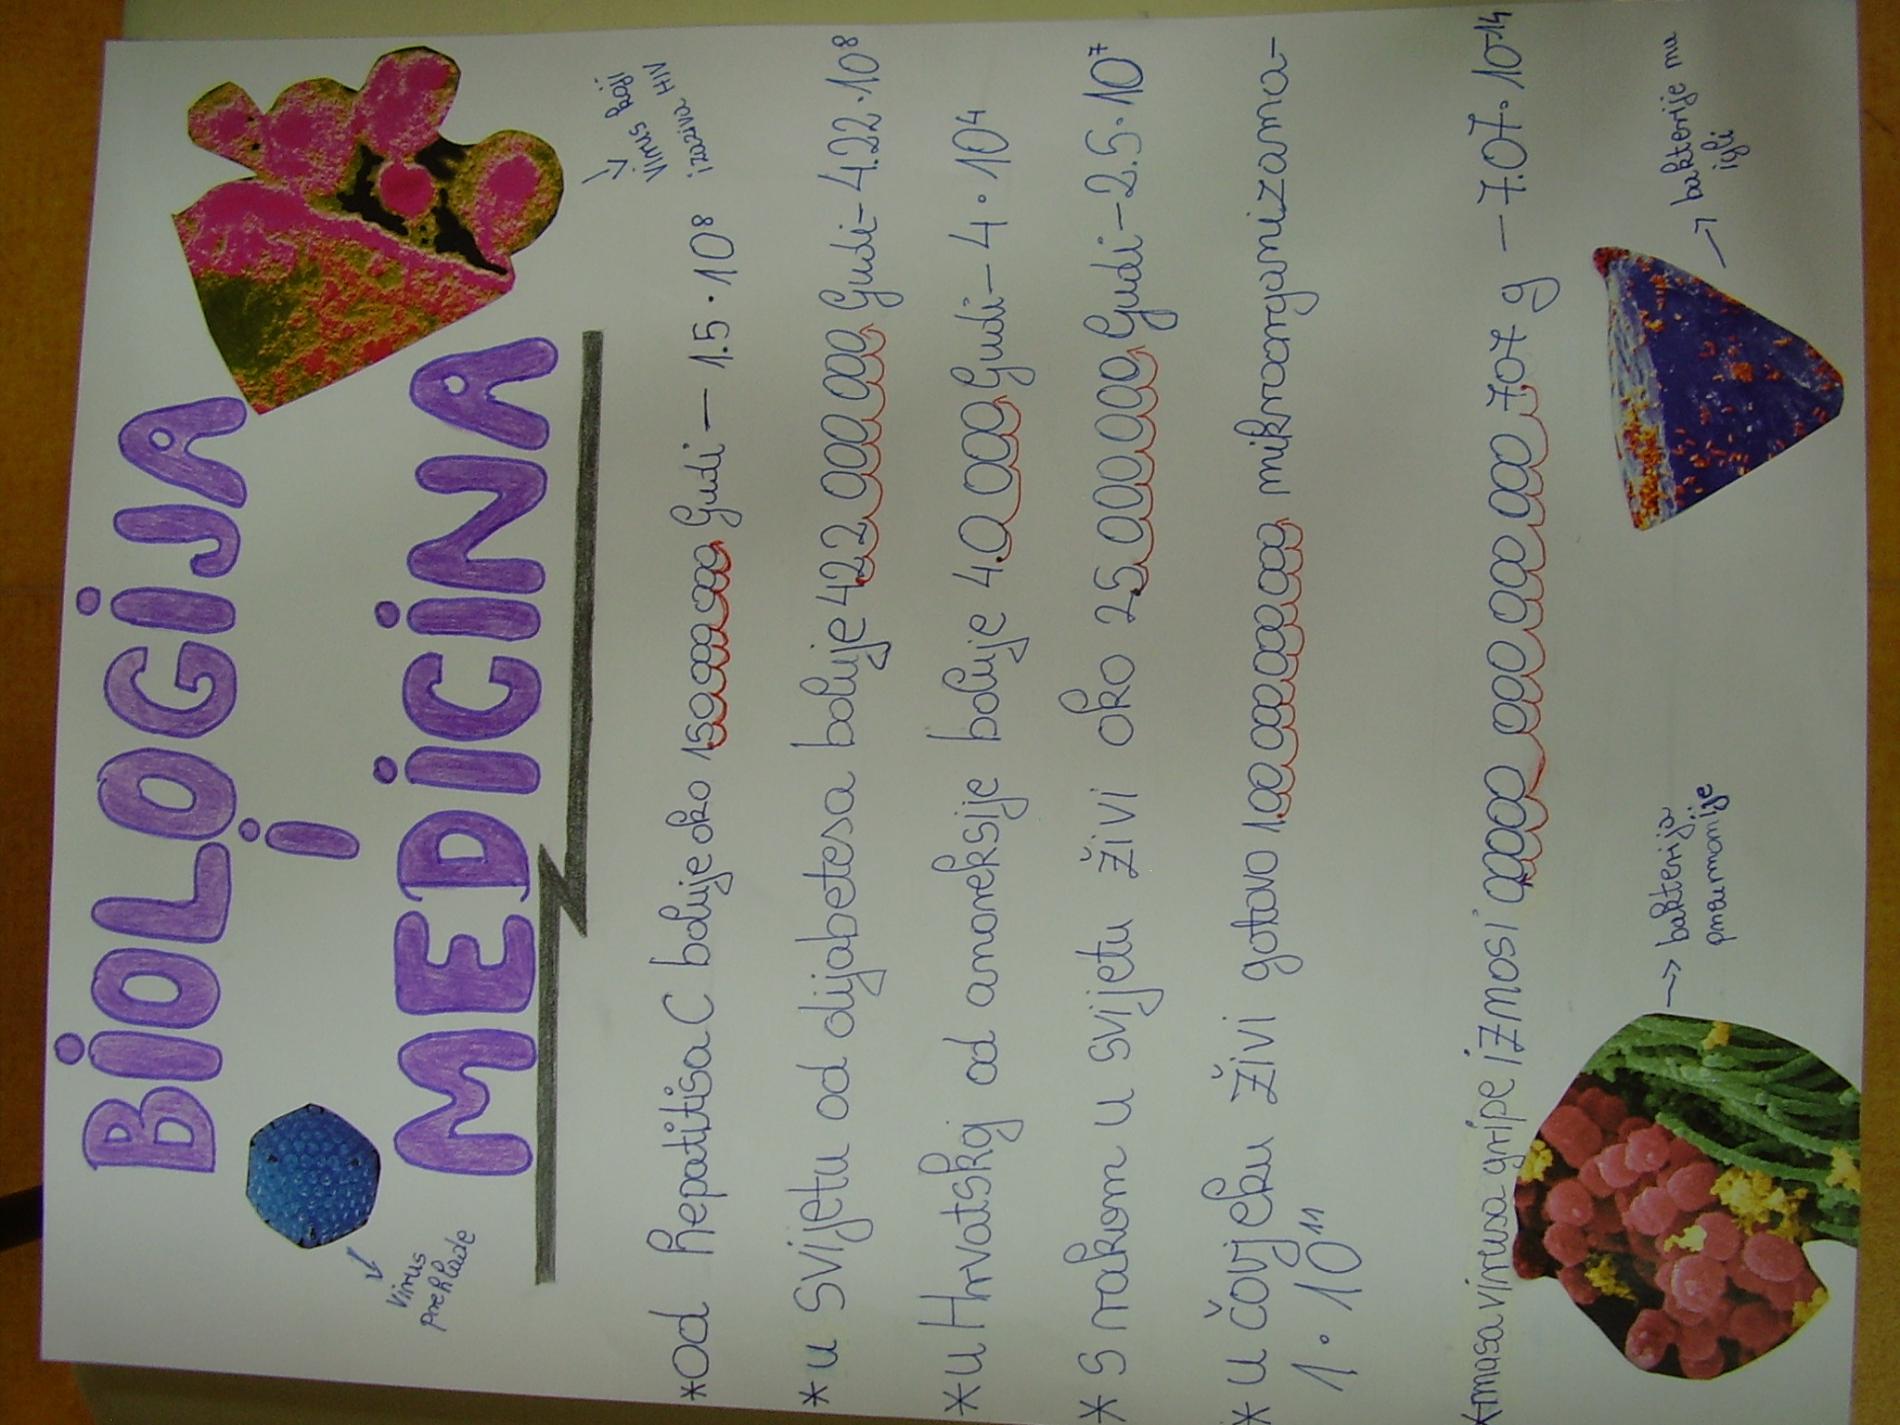 BiOLOGiJA
i
MEDiCiNA
virus
prehlade
virus koji
izaziva HIV
*Od hepatitisa C boluje oko 150 000 000 ljudi — 1.5 · 10⁸
* u svijetu od dijabetesa boluje 422 000 000 ljudi - 4.22 · 10⁸
* u Hrvatskoj od anoreksije boluje 40 000 ljudi - 4 · 10⁴
* S rakom u svijetu živi oko 25 000 000 ljudi - 2.5 · 10⁷
* u čovjeku živi gotovo 100 000 000 000 mikroorganizama -
1 · 10¹¹
*masa virusa gripe iznosi 0.000 000 000 000 0707 g - 7.07 · 10⁻¹⁴
bakterija
pneumonije
bakterije na
igli